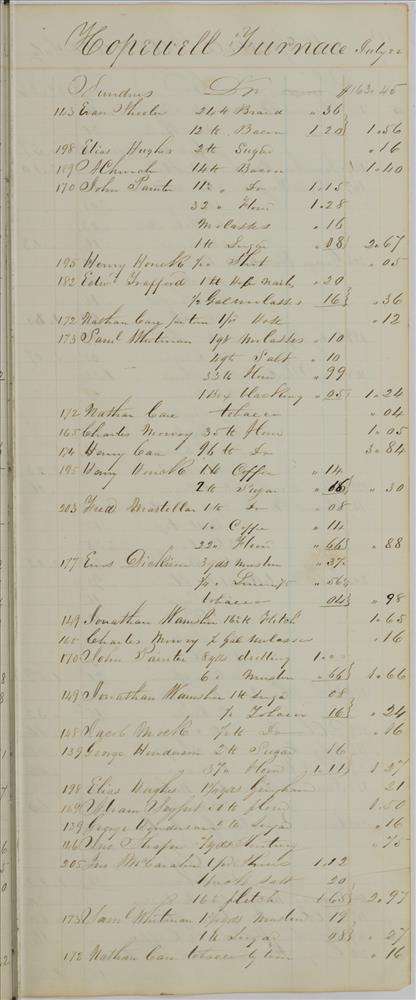 Hopewell Furnace July 22
Sundries Dr $163.45
143 Evan 24 lb Brand " 36
12 lb Bacon 1.20 1.56
198 Elias Hughes 2 lb Sugar " 16
119 Church 14 lb Bacon 1.40
170 John Painter 11½ " Do 1.15
32 " Flour 1.28
Molasses " 16
1 lb Sugar " 08 2.67
195 Henry Houck " 05
182 Edwd Trafford 1 lb nails " 20
½ Gal molasses 16 " 36
172 Nathan Care 1 pr Hose " 12
173 Saml Whitman 1 qt Molasses " 10
4 qts Salt " 10
33 lb Flour " 99
1 Box blacking " 05 1.24
172 Nathan Care tobacco " 04
165 Charles Mowry 35 lb Flour 1.05
174 Henry Care 96 lb Do 3.84
195 Henry Houck 1 lb Coffee " 14
2 lb Sugar " 16 " 30
203 Fred Mostellar 1 lb Do " 08
1 " Coffee " 14
22 " Flour " 66 " 88
177 Enos Dickison 3 yds muslin " 37
" 56
tobacco 04 " 98
149 Jonathan Wamsher 16½ lb Flitch 1.65
165 Charles Mowry ½ gal molasses " 16
170 John Painter 8 yds drilling 1.00
6 " muslin " 66 1.66
149 Jonathan Wamsher 1 lb Sugar 08
Tobacco 16 " 24
148 Jacob Mock Do " 16
139 George Henderson 2 lb Sugar 16
37 " Flour 1.11 1.27
198 Elias Hughes yds Gingham 21
169 50 lb flour 1.50
139 George Henderson 2 lb Sugar " 16
146 yds Shirting " 75
205 Jno 1 pr Shoes 1.12
1 peck salt 20
16½ flitch 1.65 2.97
173 Saml Whitman yds muslin 19
1 lb Sugar 08 " 27
172 Nathan Care tobacco " 16